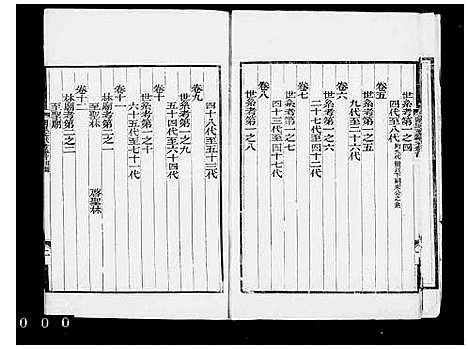 世系考第一之四
四代至八代
卷五
世系考第一之五
九代至二十六代
卷六
世系考第一之六
二十七代至四十二代
卷七
世系考第一之七
卷八
世系考第一之八
四十八代至五十三代
卷九
世系考第一之九
五十四代至六十四代
卷十
世系考第一之十
六十五代至七十一代
卷十一
林廟考第二之一
至聖林 啓聖林
卷十二
林廟考第二之二
至聖廟
000